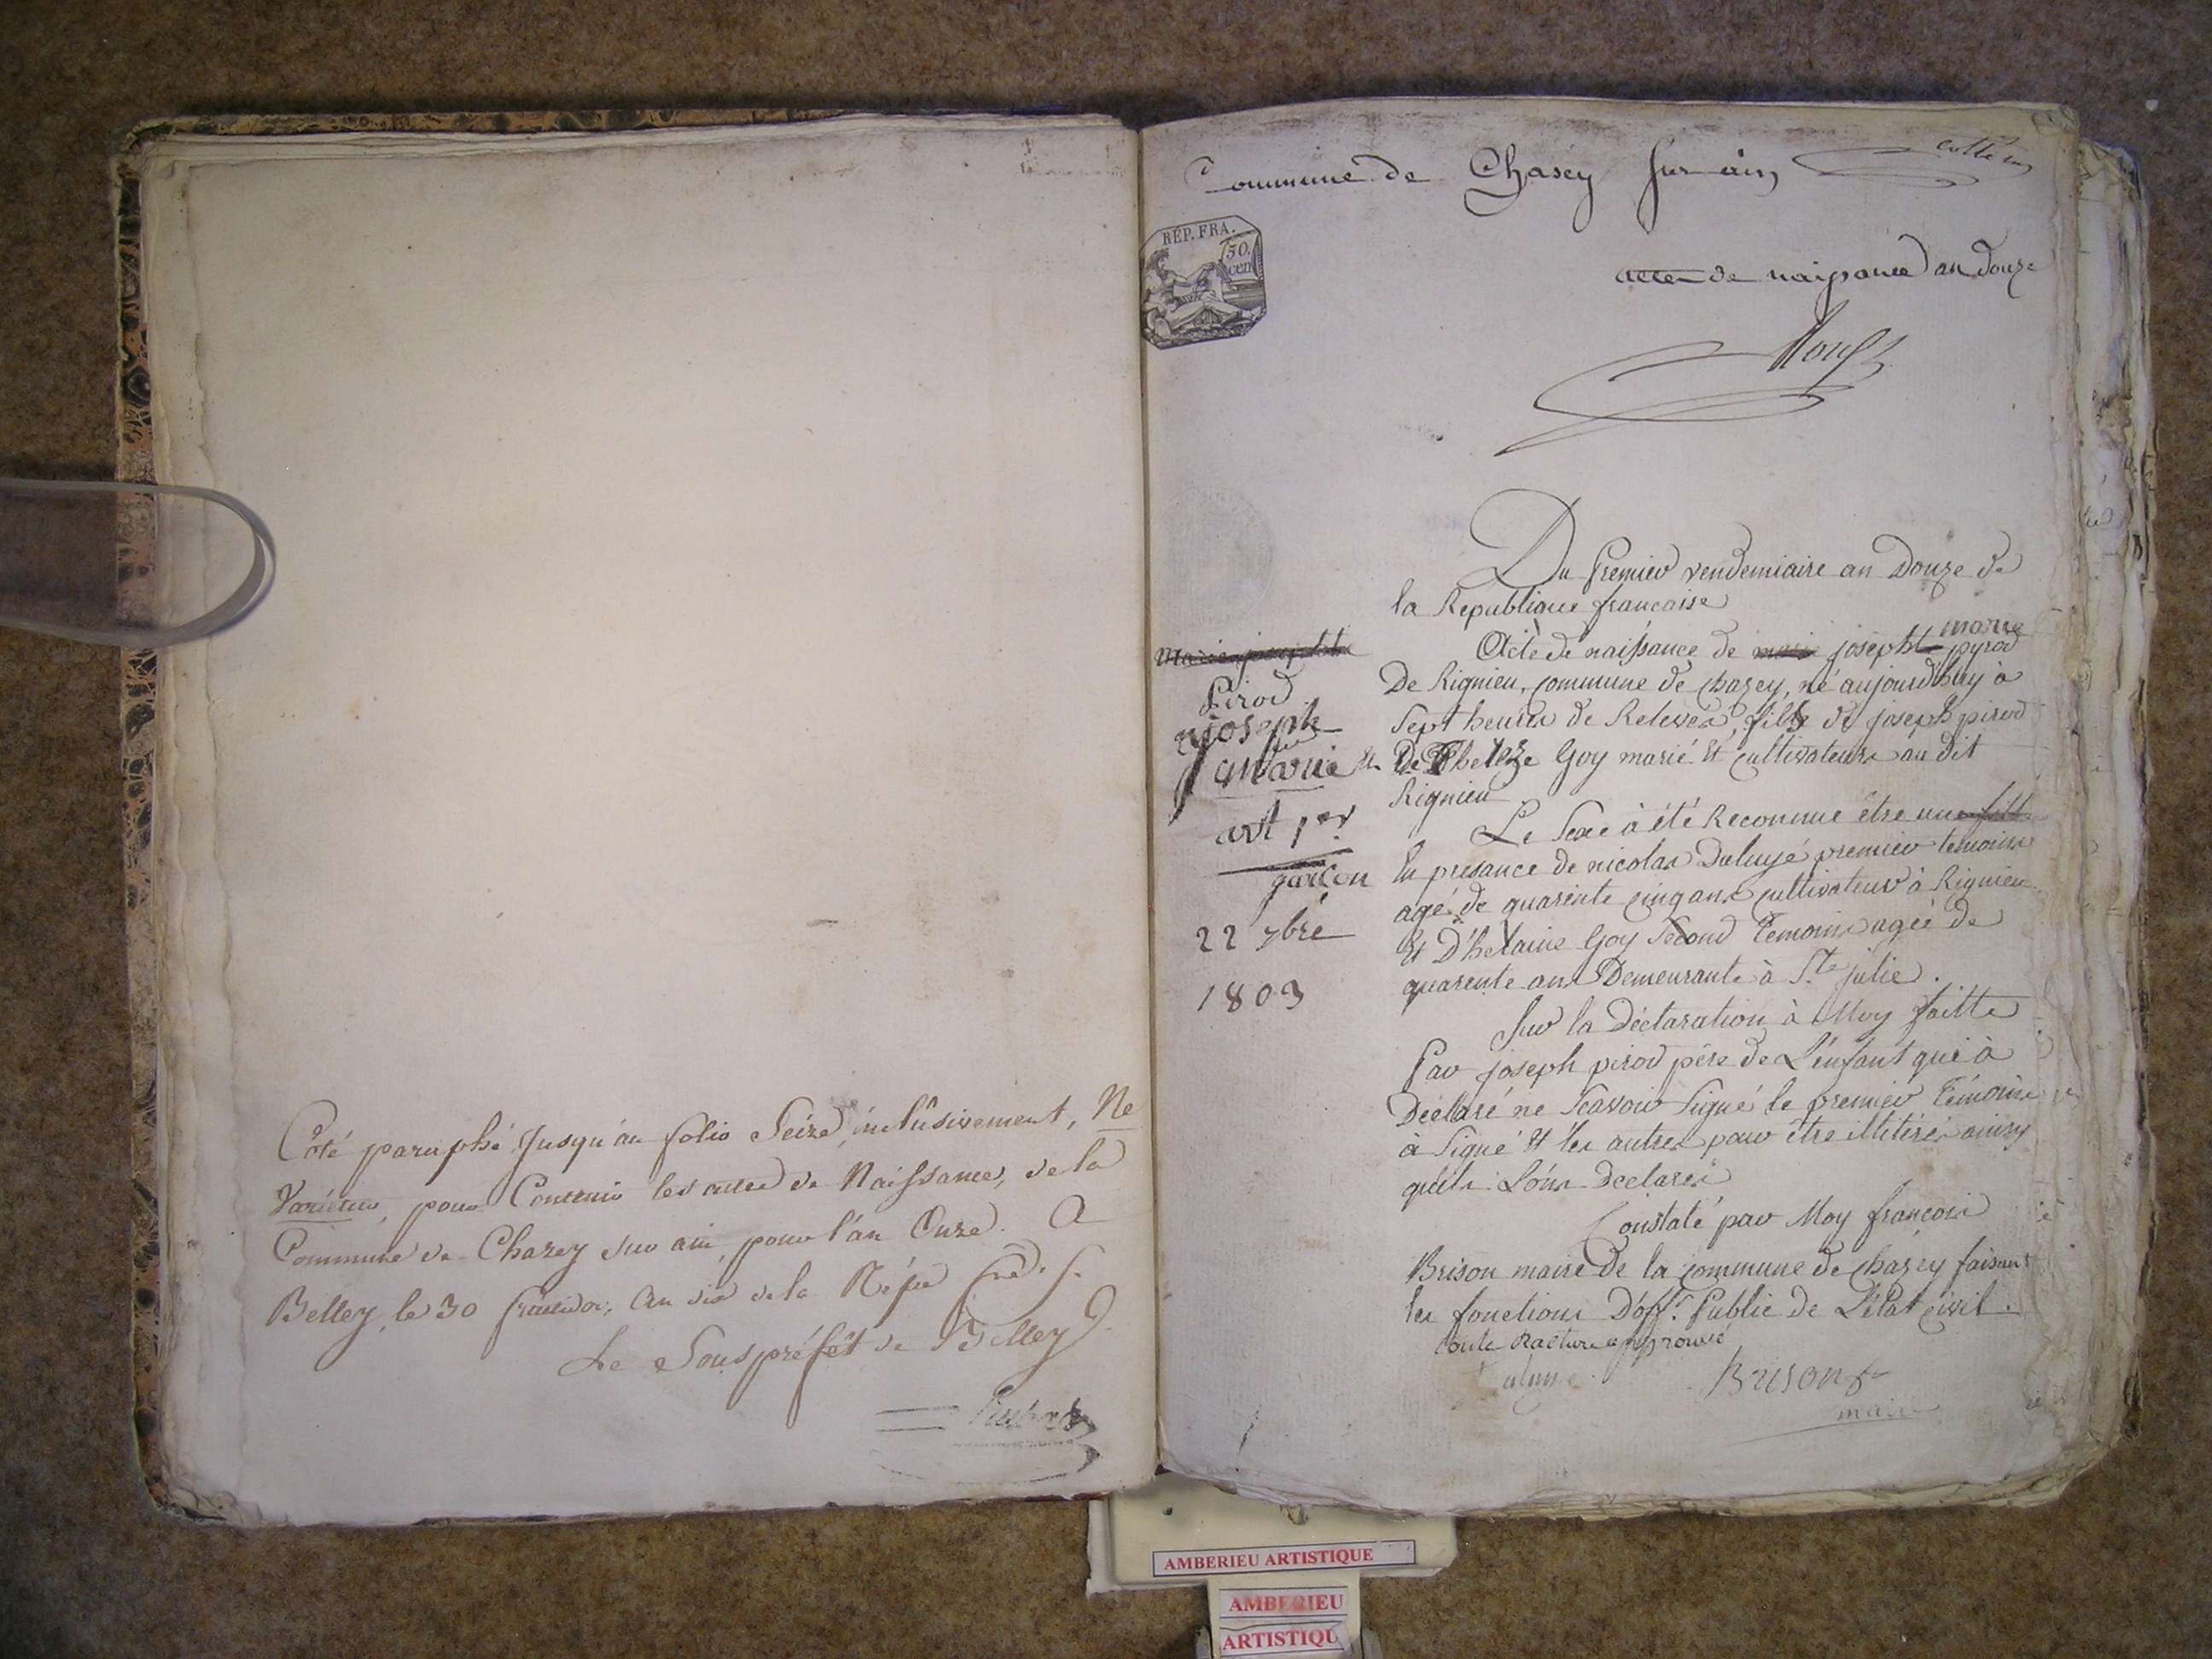 Coté paraphé Jusqu'au folio Seize inclusivement, Ne
Varietur, pour Contenir les actes de Naissance, de la
Commune de Chazey sur ain, pour l'an Onze. A
Belley, le 30 an dix de la Répu
Le Souspréfêt de Belley
Commune de Chasey sur ain
RÉP. FRA.
50.
cen
actes de naissance an douze
Du Premier vendemiaire an Douze de
la Republique francaise
Acte de naissance de joseph marie pyrod
De Rignieu, commune de chazey, né aujourdhuy à
Sept heures de Relevés, fils de joseph pirod
Goy marié Et cultivateurs au dit
Rignieu
Le Sexe à été Reconnue être une fille
En presance de nicolas Daluyé premier temoins
agé de quarente cinq ans cultivateur à Rignieu
Et D'helaine Goy Second Temoins agée de
quarente ans Demeurante à Ste julie.
Sur la Déclaration à Moy faitte
Par joseph pirod père de L'enfant qui à
Déclaré ne Scavoir Signé le premier Témoins
à Signé Et les autres pour être illitérés ainsy
quils L'ons Declarés
Constaté par Moy françois
Brison maire de la commune de chazey faisant
les fonctions D'off.r Public de L'état civil.
toute Rature approuvé
Brison
maire
Marie josephte
Pirod
joseph
marie
art 1er
garçon
22 7bre
1803
AMBERIEU ARTISTIQUE
AMBERIEU
ARTISTIQU